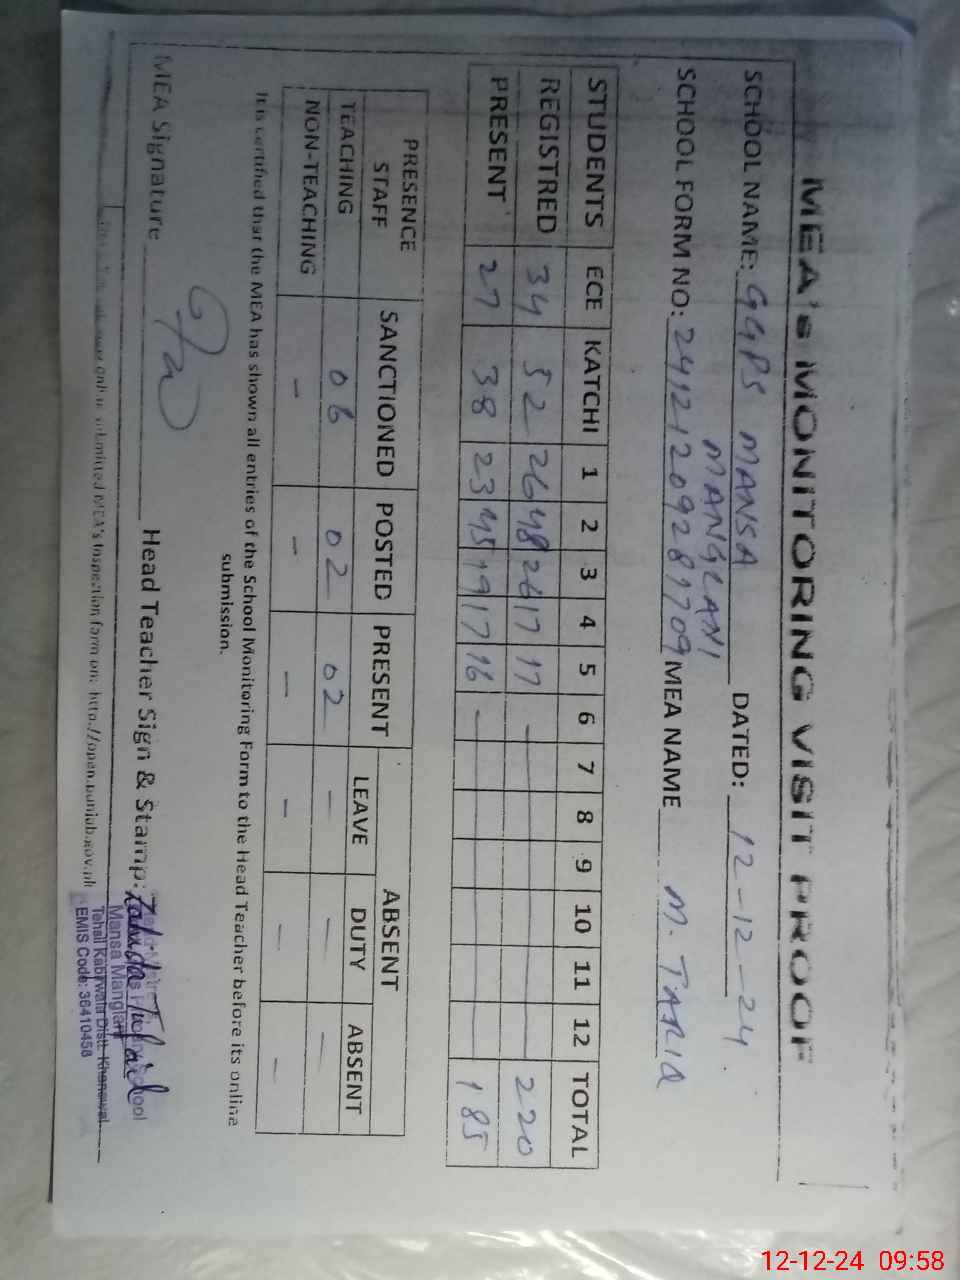 MEA's MONITORING VISIT PROOF
SCHOOL NAME: GGPS MANSA MANGLANI DATED: 12-12-24
SCHOOL FORM NO: 24121209289709 MEA NAME M. TARIQ
STUDENTS ECE KATCHI 1 2 3 4 5 6 7 8 9 10 11 12 TOTAL
REGISTRED 34 52 26 48 26 17 17 - 220
PRESENT 27 38 23 45 19 17 16 - 185
PRESENCE STAFF SANCTIONED POSTED PRESENT ABSENT
LEAVE DUTY ABSENT
TEACHING 06 02 02 - - -
NON-TEACHING - - - - - -
It is certified that the MEA has shown all entries of the School Monitoring Form to the Head Teacher before its online
submission.
MEA Signature Head Teacher Sign & Stamp:
Mansa Manglani
Tehsil Kabirwala Distt. Khanewal
EMIS Code: 36410458
online submitted MEA's Inspection form on: http://open.punjab.gov.pk
12-12-24 09:58